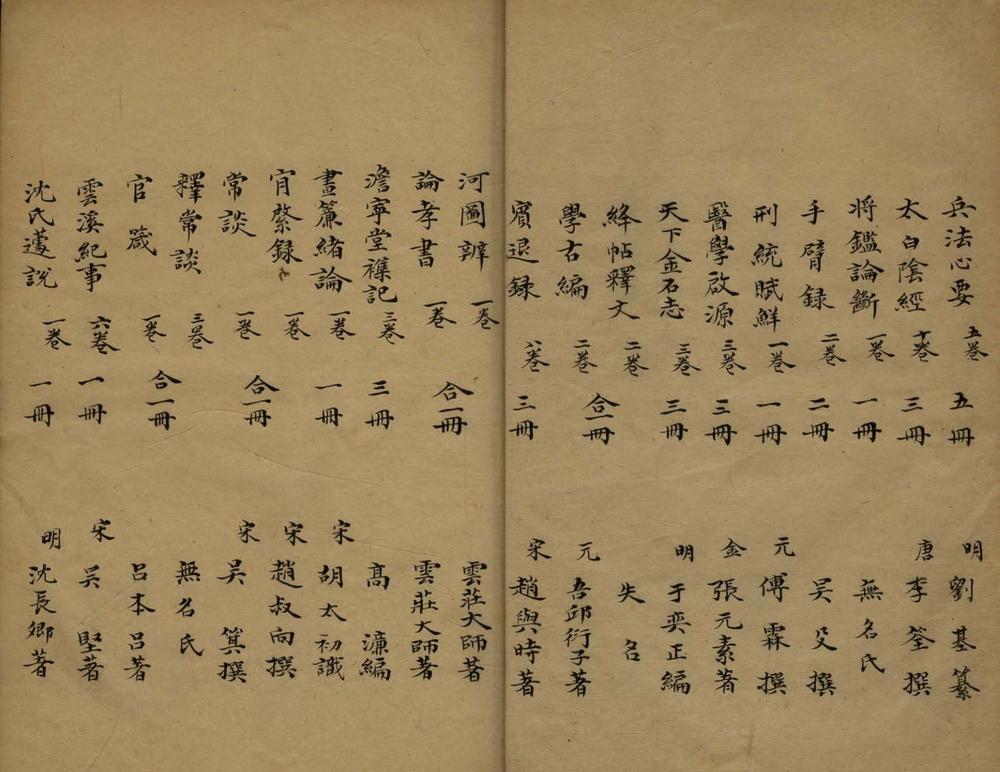 兵法心要 五卷 五冊 明 劉基纂
太白陰經 十卷 三冊 唐 李筌撰
將鑑論斷 一卷 一冊 無名氏
手臂録 二卷 二冊 吴殳撰
刑統賦觧 一卷 一冊 元 傅霖撰
醫學啟源 三卷 三冊 金 張元素著
天下金石志 三卷 三冊 明 于奕正編
絳帖釋文 二卷 合一冊 失名
學古編 二卷 元 吾邱衍子著
賔退録 八卷 三冊 宋 趙與時著
河圖辨 一卷 合一冊 雲莊大師著
論孝書 一卷 雲莊大師著
澹寧堂襍記 三卷 三冊 高濂編
晝簾緒論 一卷 一冊 宋 胡太初譔
肎綮録 一卷 合一冊 宋 趙叔向撰
常談 一卷 宋 吴箕撰
釋常談 三卷 合一冊 無名氏
官箴 一卷 吕本吕著
雲溪紀事 六卷 一冊 宋 吴堅著
沈氏蘧説 一卷 一冊 明 沈長卿著